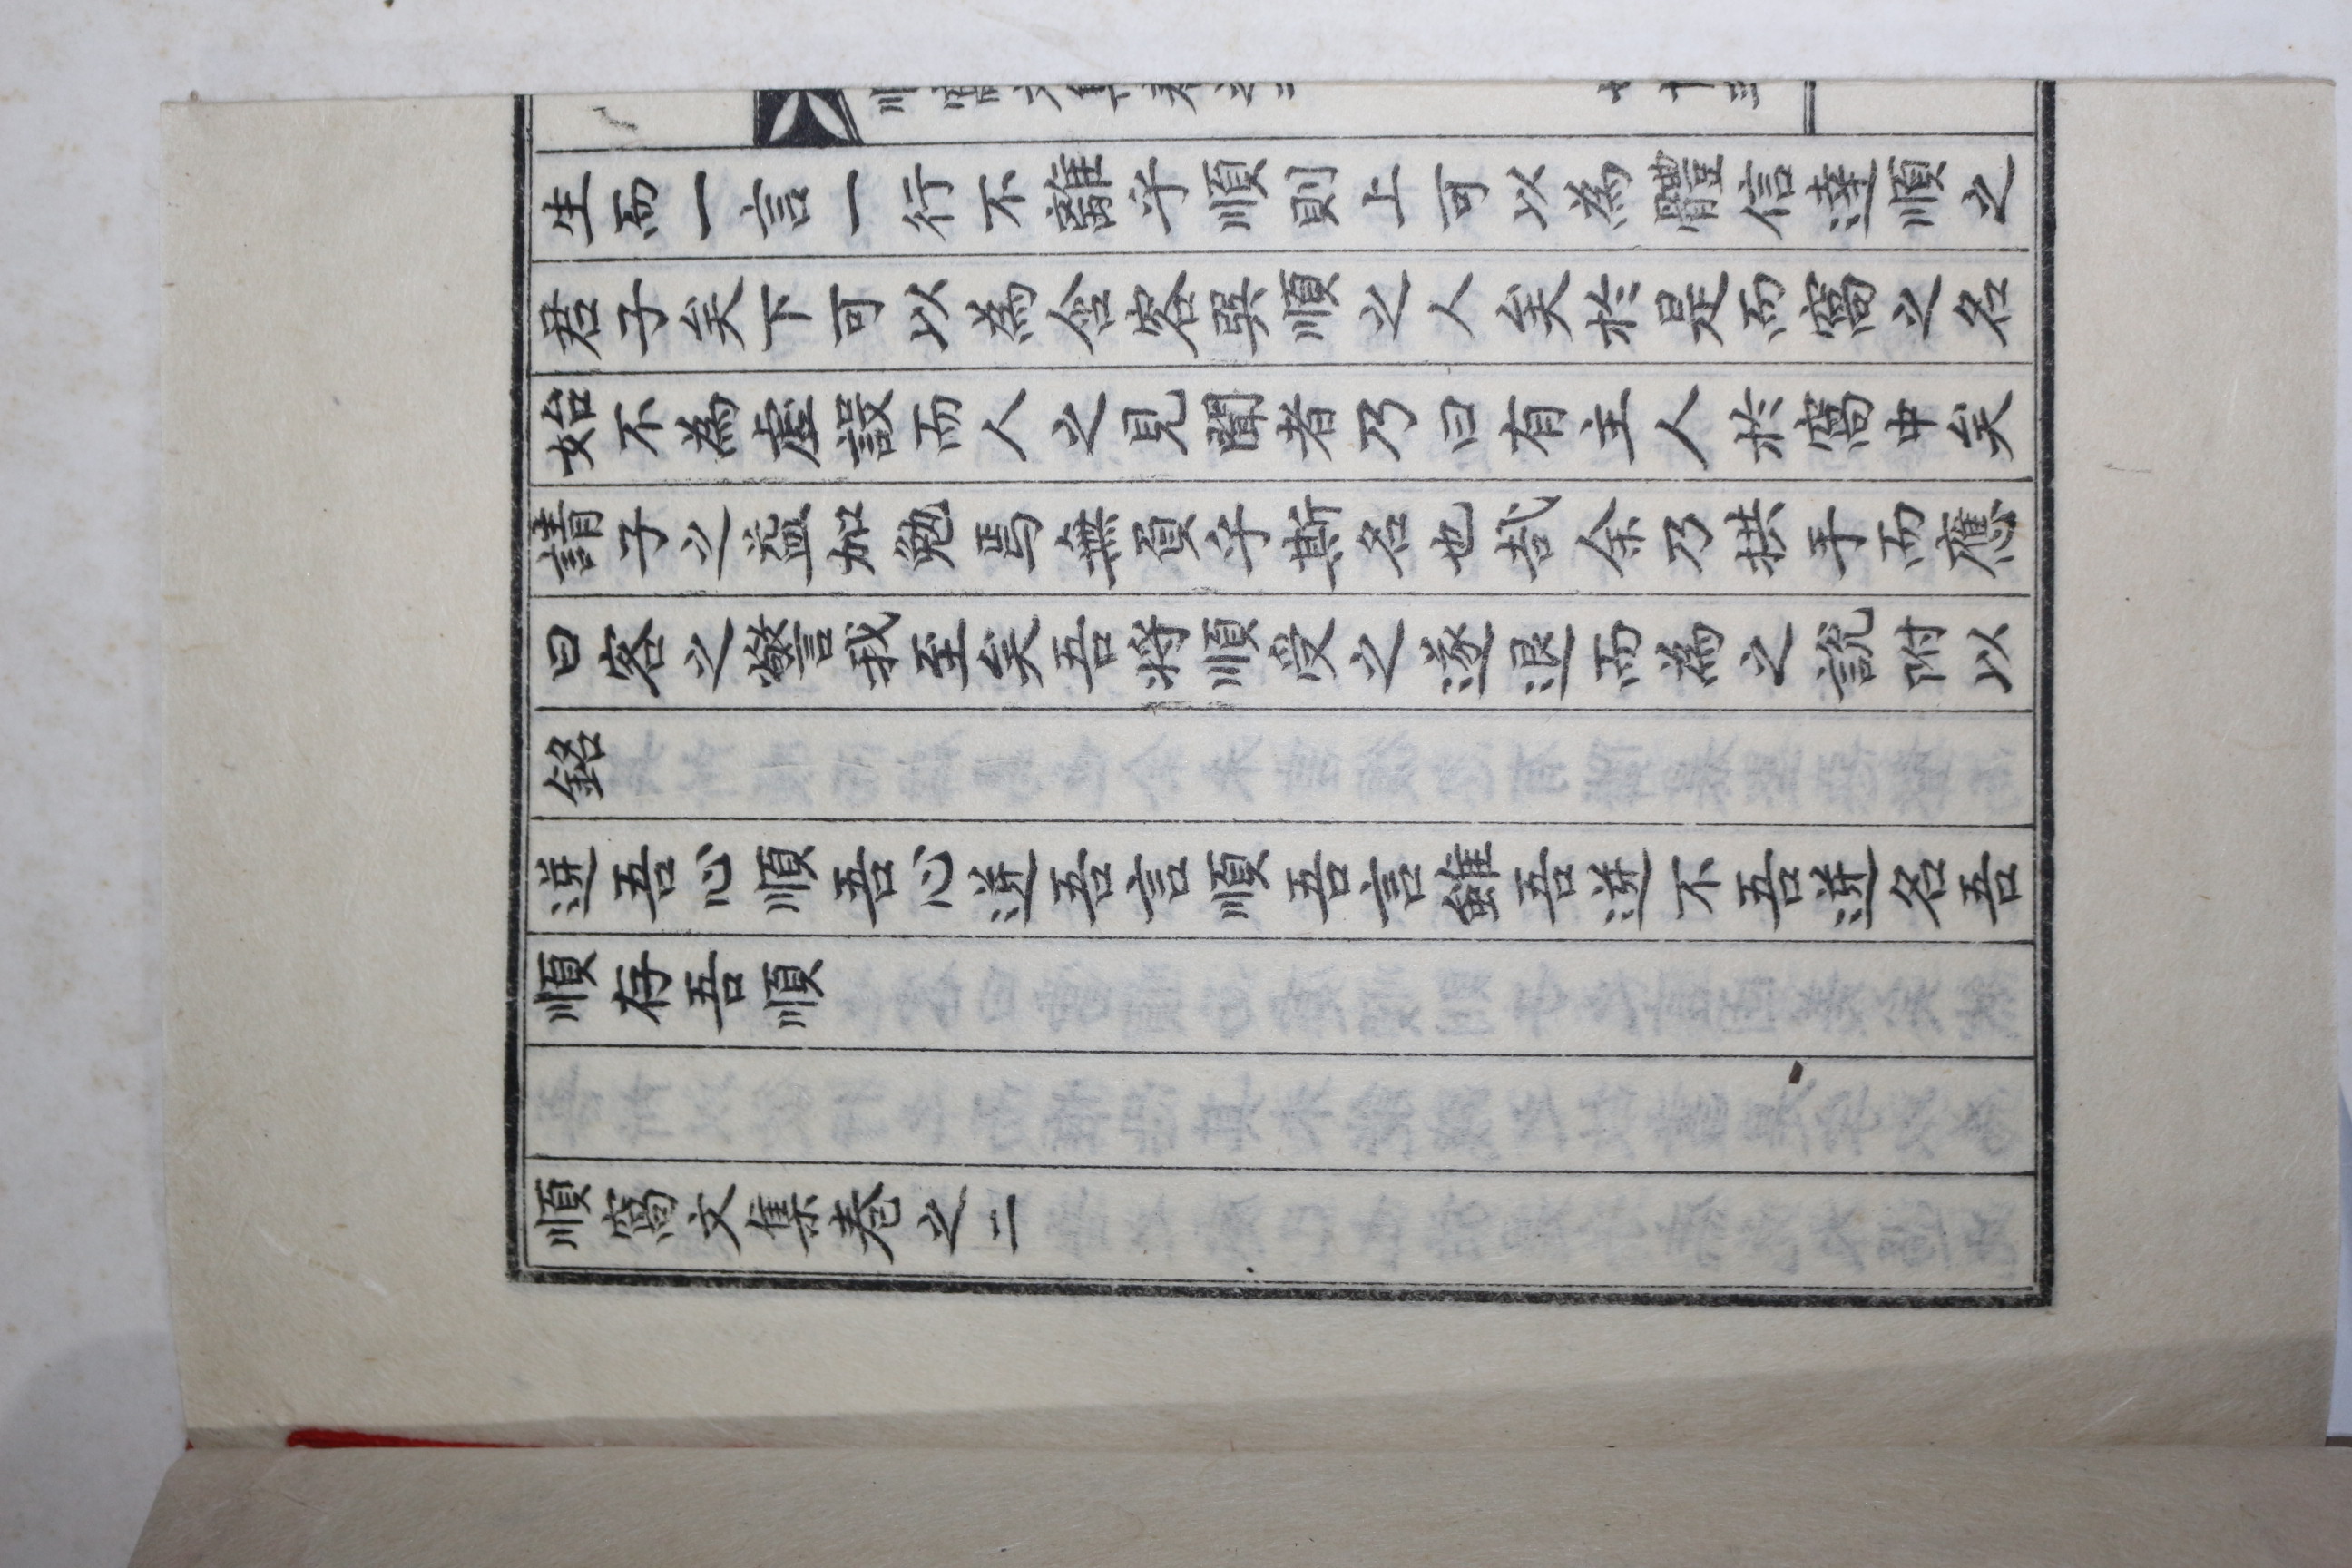 順窩文集卷之二
十三
生而一言一行不離乎順則上可以為體信達順之
君子矣下可以為含容巽順之人矣於是而窩之名
始不為虛設而人之見聞者乃曰有主人於窩中矣
請子之益加勉焉無負乎斯名也哉余乃拱手而應
曰客之警我至矣吾將順受之遂退而為之說附以
銘
逆吾心順吾心逆吾言順吾言雖吾逆不吾逆名吾
順存吾順
順窩文集卷之二